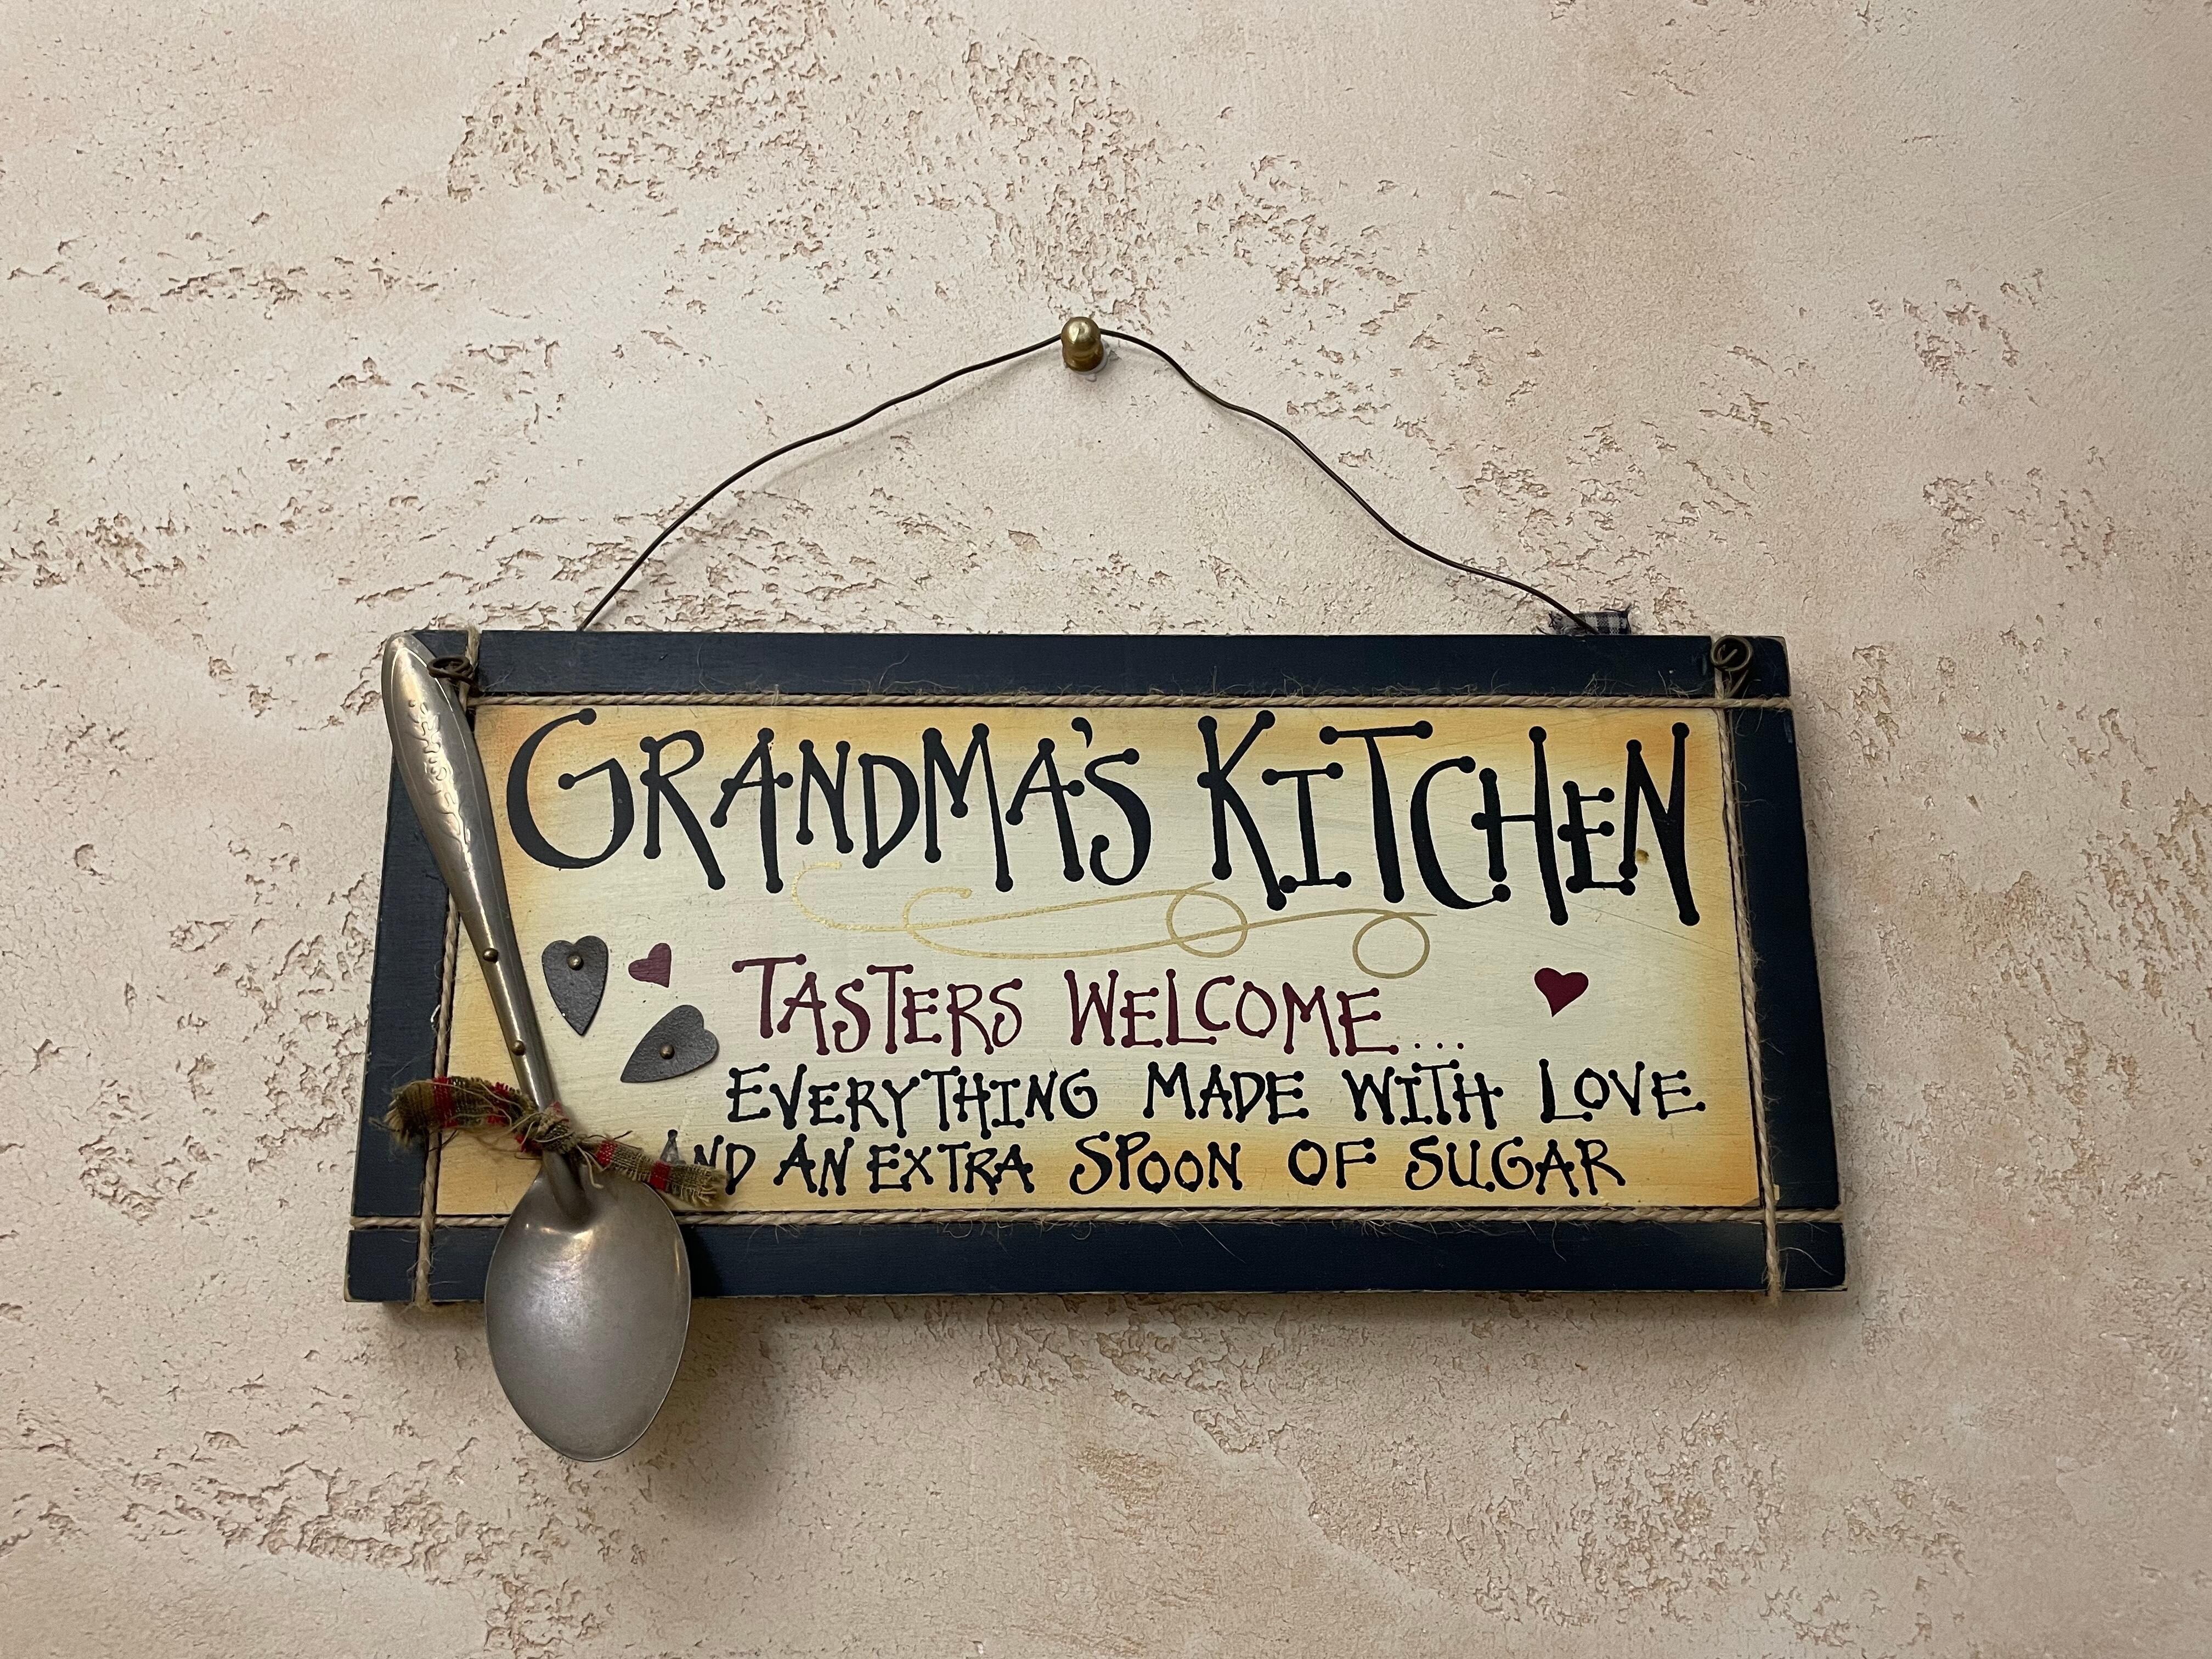 GRANDMA'S KITCHEN
TASTERS WELCOME...
EVERYTHING MADE WITH LOVE
AND AN EXTRA SPOON OF SUGAR